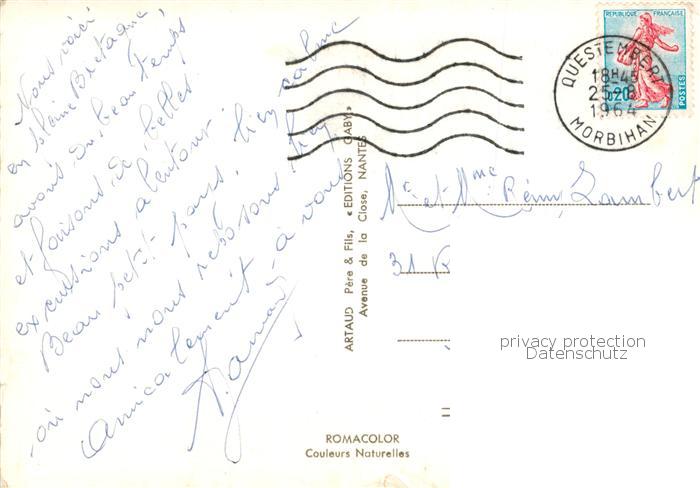 Nous voici
en pleine Bretagne
avons du beau temps
et faisons de belles
excursions alentour.
Beau petit pays, bien calme
où nous nous reposons bien
Amicalement à vous
ARTAUD Père & Fils, «EDITIONS GABY»
Avenue de la Close, NANTES
ROMACOLOR
Couleurs Naturelles
REPUBLIQUE FRANÇAISE
0,20
POSTES
QUESTEMBERT
18H45
25-8
1964
MORBIHAN
Mr et Mme Rémy Lambert
31
privacy protection
Datenschutz